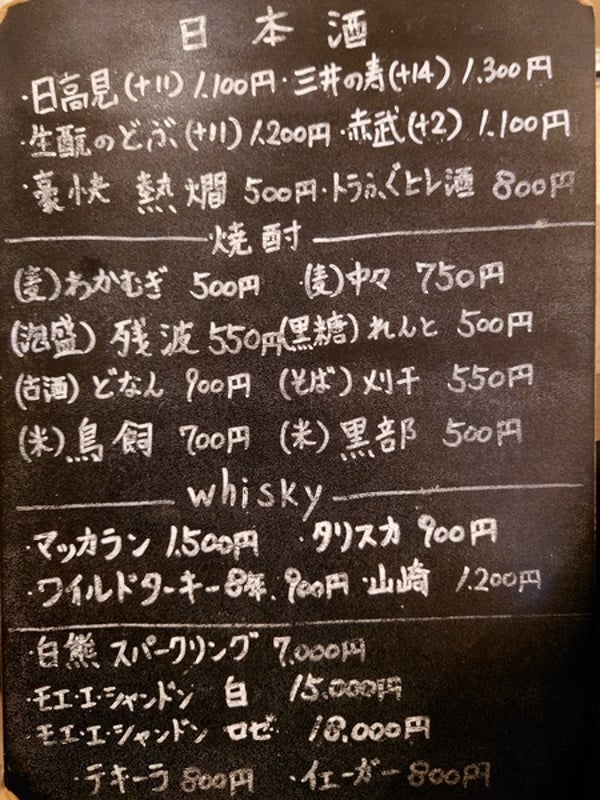 日本酒
・日高見(+11) 1.100円・三井の寿(+14) 1.300円
・生酛のどぶ(+11) 1.200円・赤武(+2) 1.100円
・豪快 熱燗 500円・トラふぐヒレ酒 800円
焼酎
(麦)あかむぎ 500円 ・(麦)中々 750円
(泡盛) 残波 550円(黒糖) れんと 500円
(古酒) どなん 900円 (そば) 刈干 550円
(米) 鳥飼 700円 (米) 黒部 500円
whisky
・マッカラン 1.500円 ・タリスカ 900円
・ワイルドターキー8年. 900円・山崎 1.200円
・白熊 スパークリング 7.000円
・モエ・エ・シャンドン 白 15.000円
・モエ・エ・シャンドン ロゼ 18.000円
・テキーラ 800円 ・イェーガー 800円